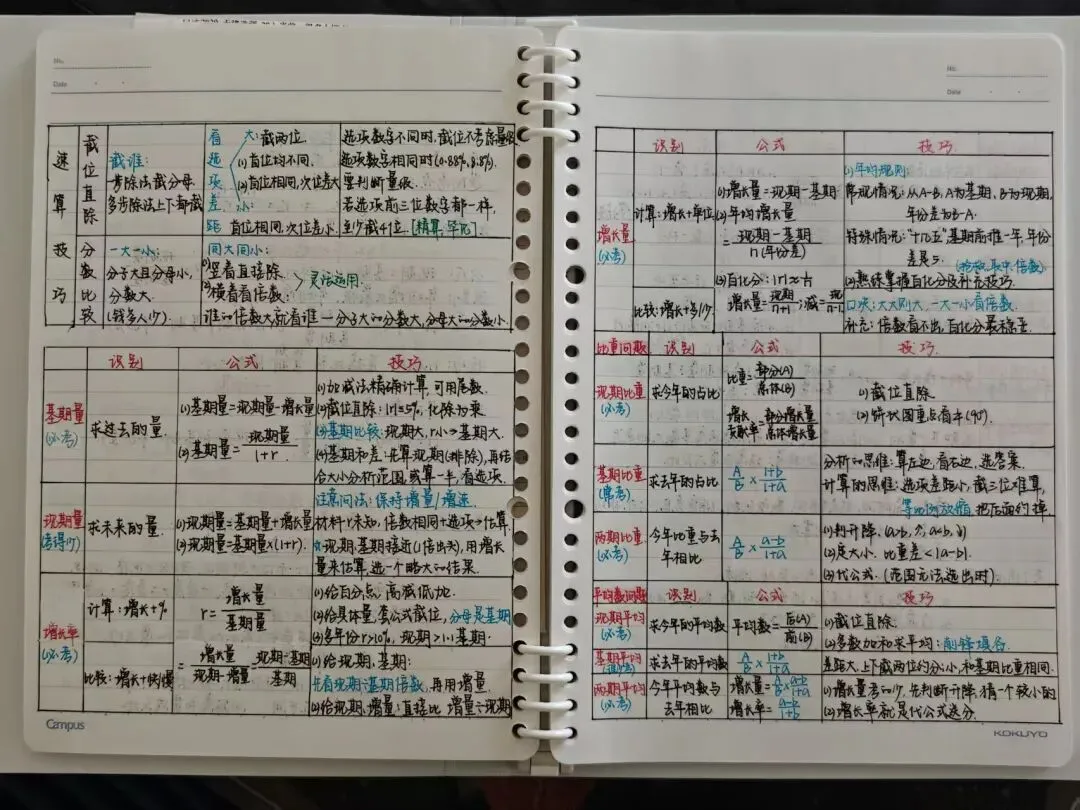 No.
Date
速算技巧
截位直除
截谁:
一步除法截分母.
多步除法上下都截
看选项差距
大: 截两位.
(1) 首位均不同.
(2) 首位相同, 次位差大
小:
首位相同, 次位差小.
选项数字不同时, 截位不考虑量级
选项数字相同时(0.88%, 8.8%)
要判断量级.
若选项前三位数字都一样,
至少截4位. [精算. 罕见]
分数比较
一大一小:
分子大且分母小,
分数大.
(钱多人少)
同大同小:
(1) 竖着直接除
(2) 横着看倍数:
> 灵活运用.
谁的倍数大就看谁-分子大的分数大, 分母大的分数小.
识别
公式
技巧
基期量
(必考)
求过去的量.
(1) 基期量=现期量-增长量
(2) 基期量= 现期量/1+r
(1) 加减法精确计算, 可用尾数.
(2) 截位直除: |r|≤5%, 化除为乘
(3) 基期比较: 现期大, r小→基期大.
(4) 基期和差: 先算现期(排除), 再结
合大小分析范围, 或算一半, 看选项.
现期量
(考得少)
求未来的量.
(1) 现期量=基期量+增长量
(2) 现期量=基期量×(1+r).
注意问法: 保持增量/增速
材料r未知, 倍数相同+选项→估算.
☆现期.基期接近(1倍出头), 用增长
量来估算, 选一个略大的结果.
增长率
(必考)
计算: 增长+%
r= 增长量/基期量
(1) 给百分点, 高减低加.
(2) 给具体量, 套公式截位, 分母是基期
(3) 多年份r>10%, 现期>1.1基期.
比较: 增长+快/慢
= 增长量/现期-增量 = 现期-基期/基期
(1) 给现期.基期:
先看现期÷基期倍数, 再用增量.
(2) 给现期.增量: 直接比 增量÷现期
Campus
No.
Date
识别
公式
技巧
增长量
(必考)
计算: 增长+单位
(1) 增长量=现期-基期
(2) 年均增长量
= 现期-基期/n(年份差)
(3) 百化分: |r|≈1/n
(1) 年均规则:
常规情况: 从A-B, A为基期, B为现期,
年份差为B-A.
特殊情况: "十几五", 基期前推一年, 年份
差是5.
(2) 熟练掌握百化分及补充技巧.
比较: 增长+多/少
增长量=现期/n+1; 减=现/n-1
口诀: 大大则大, 一大一小看倍数.
补充: 倍数看不出, 百化分最稳妥.
比重问题
识别
公式
技巧
现期比重
(必考)
求今年的占比
比重= 部分(A)/总体(B)
增长贡献率= 部分增长量/总体增长量
(1) 截位直除
(2) 饼状图重点看¼(90°).
基期比重
(常考)
求去年的占比
A/B × 1+b/1+a
分析的思维: 算左边, 看右边, 选答案.
计算的思维: 选项差距小, 截三位难算,
等比例放缩 把后面约掉.
两期比重
(必考)
今年比重与去
年相比
A/B × a-b/1+a
(1) 判升降. (a>b, 升, a<b, 降)
(2) 定大小. 比重差<|a-b|.
(3) 代公式. (范围无法选出时).
平均数问题
识别
公式
技巧
现期平均
(必考)
求今年的平均数
平均数= 后(A)/前(B)
(1) 截位直除:
(2) 多数加和求平均: 削峰填谷.
基期平均
求去年的平均数
A/B × 1+b/1+a
差距大, 上下截两位约分; 小, 和基期比重相同.
两期平均
(必考)
今年平均数与
去年相比
增长量= A/B × a-b/1+a
增长率= a-b/1+b
(1) 增长量考的少, 先判断升降, 猜一个较小的
(2) 增长率就是代公式送分.
KOKUYO